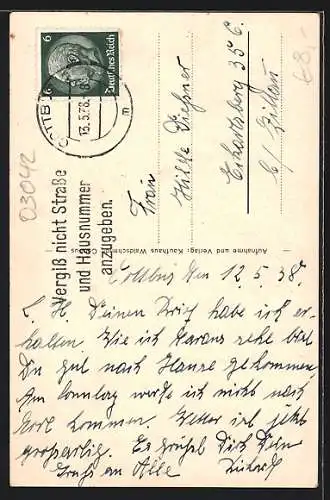 6 6
Deutsches Reich
COTTBUS
13.5.38
m
Vergiß nicht Straße
und Hausnummer
anzugeben.
03042
68,-
Frau
Hilde Dießner
Eckartsberg 35 c.
b/ Zittau
Aufnahme und Verlag: Kaufhaus Waldschm
Cottbus den 12.5.38.
L. H. Deinen Brief habe ich er-
halten. Wie ich daraus sehe bist
Du gut nach Hause gekommen,
Am Sonntag werde ich nicht nach
dort kommen. Wetter ist jetzt
großartig. Es grüßt Dich Dein
Gruß an Alle Richard